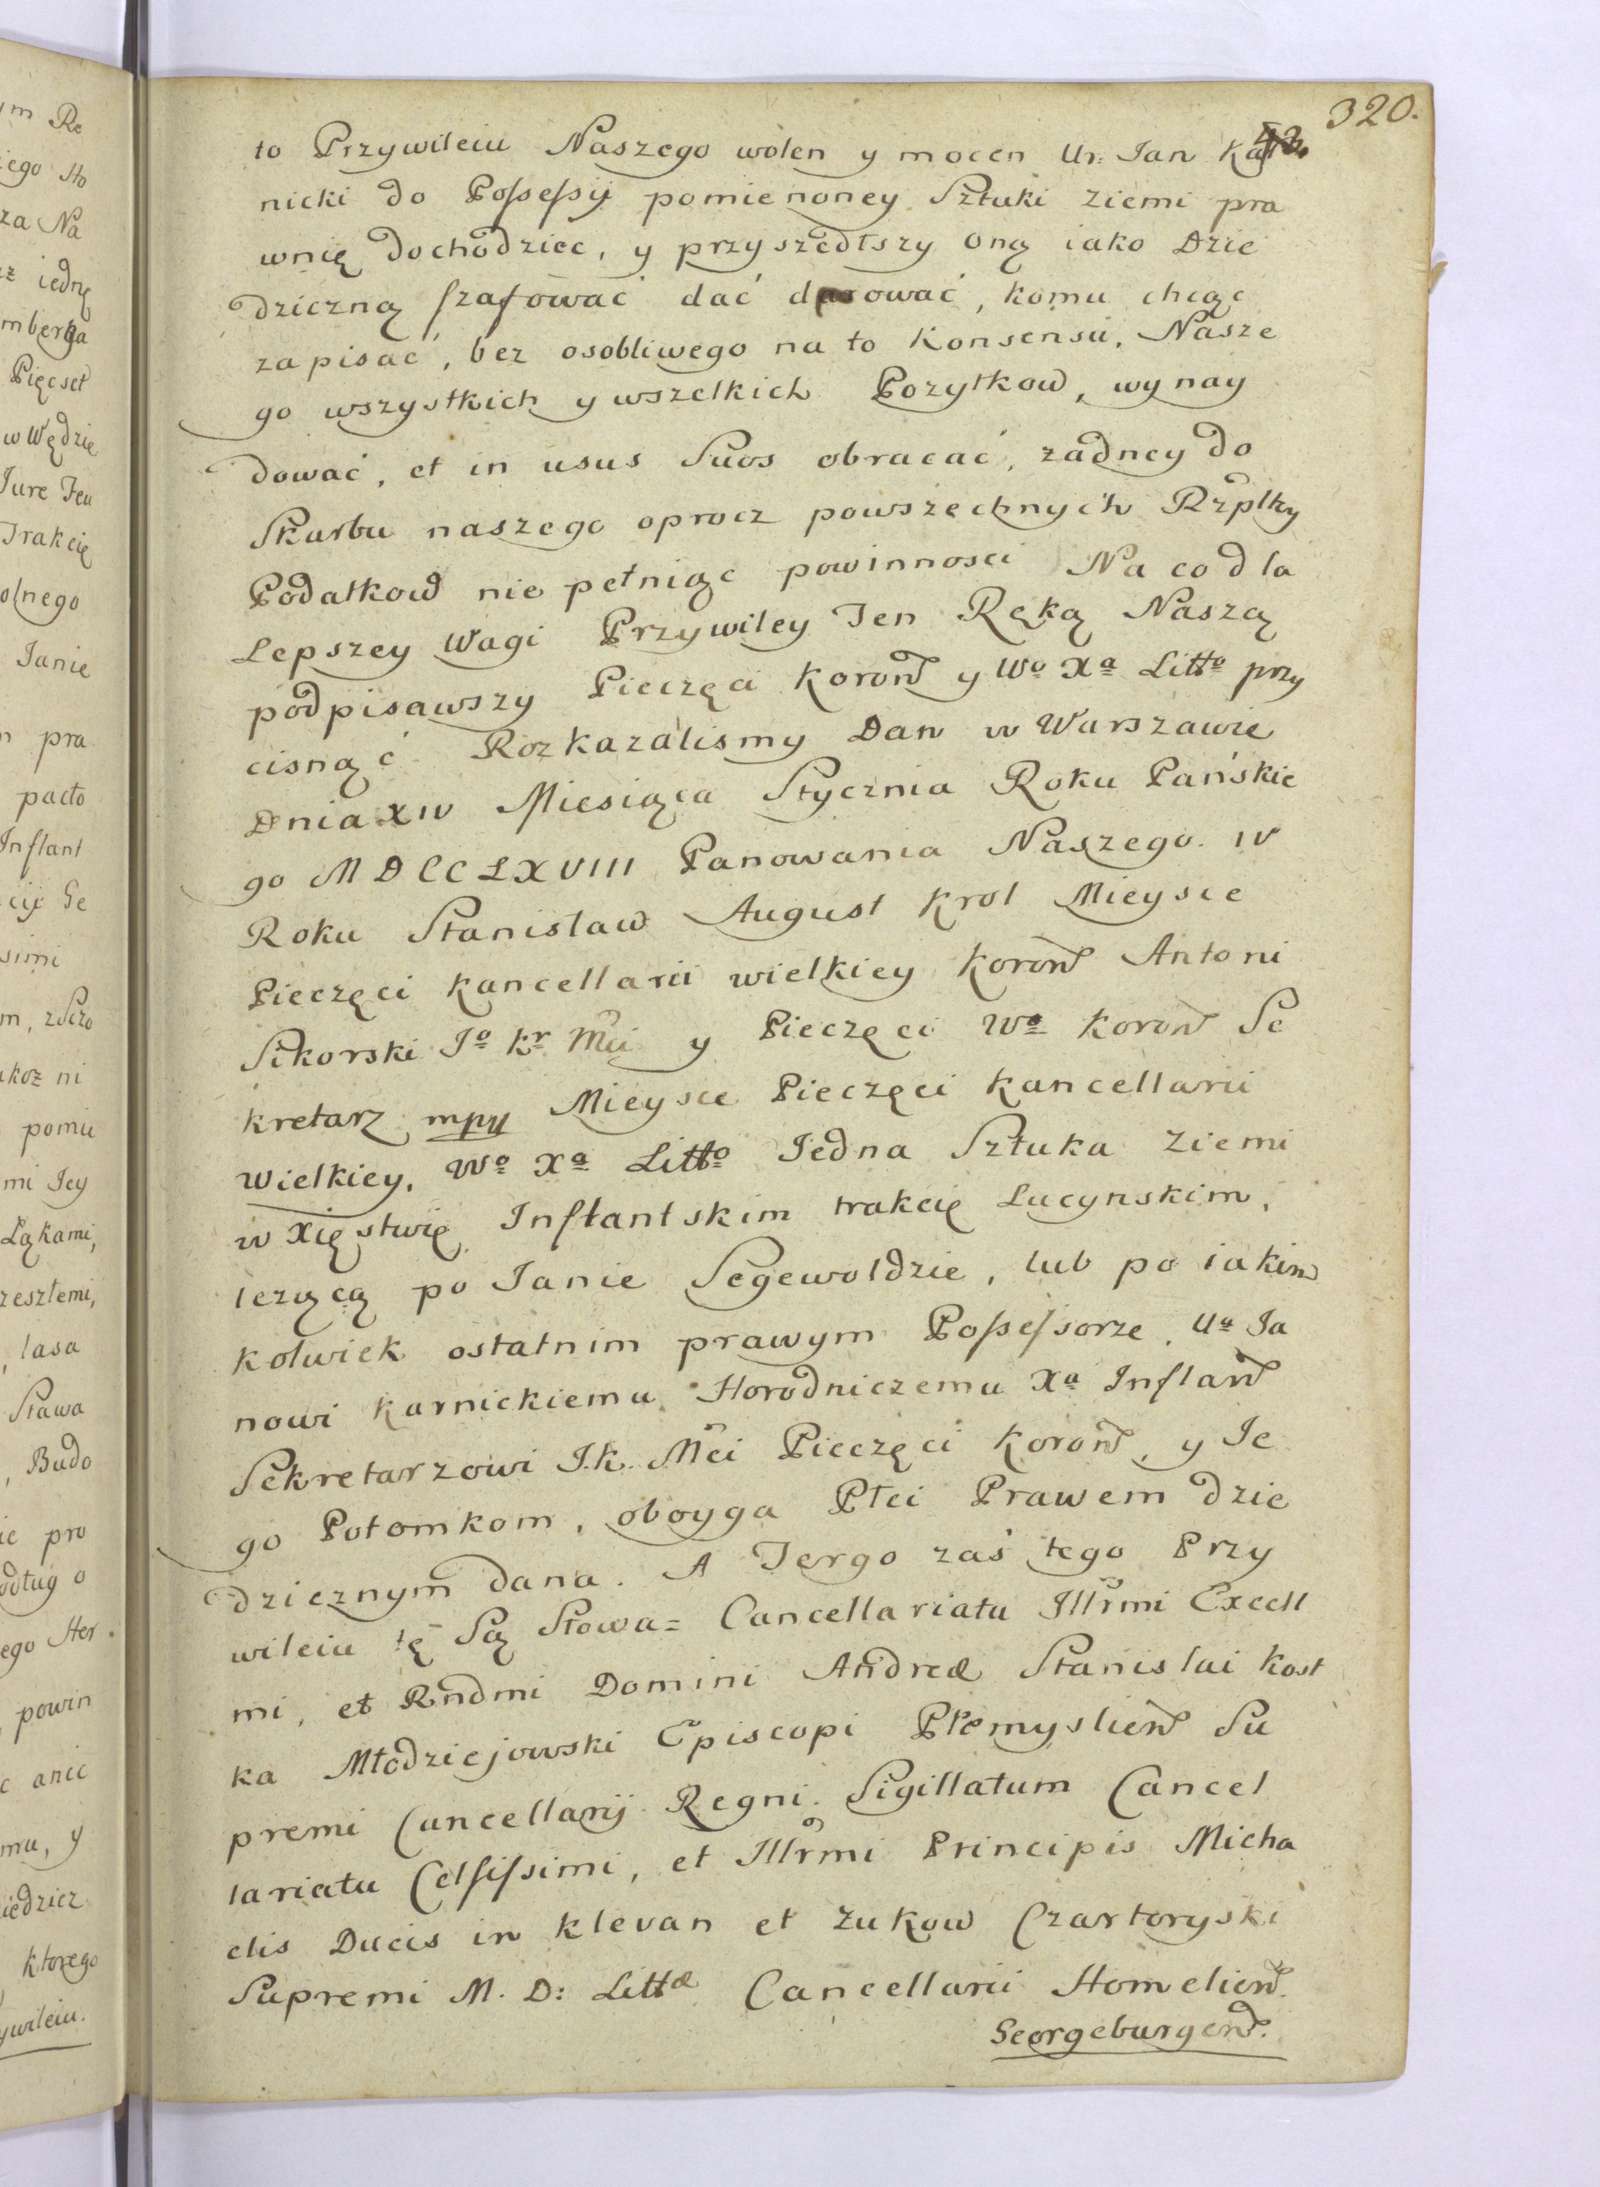 320.
to Przywileiu Naszego wolen y mocen Ur: Jan Kar
nicki do Possessyi pomienoney Sztuki ziemi pra
wnię dochodziec, y przyszedłszy oną iako Dzie
dziczną szafować dać darować, komu chcąc
zapisać, bez osobliwego na to Konsensu, Nasze
go wszystkich y wszelkich Pozytkow, wynay
dować, et in usus Suos obracać, zadney do
Skarbu naszego oprocz powszechnych Rzplty
Podatkow nie pełniąc powinnosci Na co dla
Lepszey Wagi Przywiley Ten Ręką Naszą
podpisawszy Pieczęci Koron y Wo Xa Litto przy
cisnąć Rozkazalismy Dan w Warszawie
Dnia XIV Miesiąca Stycznia Roku Pańskie
go MDCCLXVIII Panowania Naszego. IV
Roku Stanisław August Krol Mieysce
Pieczęci Kancellarii wielkiey Koron Antoni
Sikorski Jo Kr Mci y Pieczęci Wa Koron Se
kretarz mpp Mieysce Pieczęci Kancellarii
Wielkiey, Wo Xa Litto Jedna Sztuka ziemi
w Xięstwię Inflantskim trakcię Lucynskim,
lezącą po Janie Segewoldzie, lub po iakim
kolwiek ostatnim prawym Possessorze, Ua Ja
nowi Karnickiemu Horodniczemu Xa Inflan
Sekretarzowi J.K. Mci Pieczęci Koron, y Je
go Potomkom, oboyga Płci Prawem dzie
dzicznym dana. A Tergo zaś tego Przy
wileiu tę Są Słowa= Cancellariatu Illrmi Excell
mi, et Rndmi Domini Andreæ Stanislai Kost
ka Młodziejowski Episcopi Płemyslien Su
premi Cancellarij Regni. Sigillatum Cancel
lariatu Celsissimi, et Illrmi Principis Micha
elis Ducis in Klevan et Zukow Czartoryski
Supremi M. D: Littæ Cancellarii Homelien.
Georgeburgen.